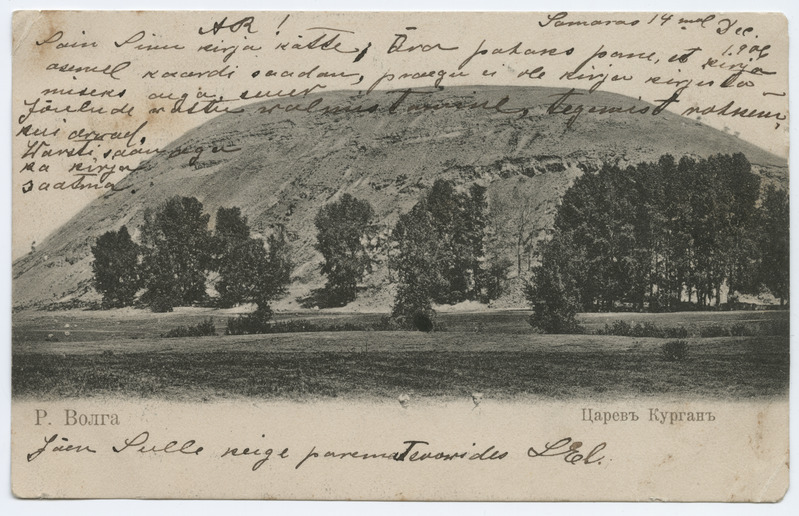 AR!
Samaras 14 mal Dec.
1906
Sain Sinu kirja kätte, Ära pahaks pane, et kirja
asemel kaardi saadan, praegu ei ole kirja kirjuta
miseks aega, suur
Jõulude vastu walmistamine, tegemist rohkem,
kui arwad.
Warsti saan aga
ka kirja
saatma.
Р. Волга
Царевъ Курганъ
Jäen Sulle keige paremat soovides LEl.